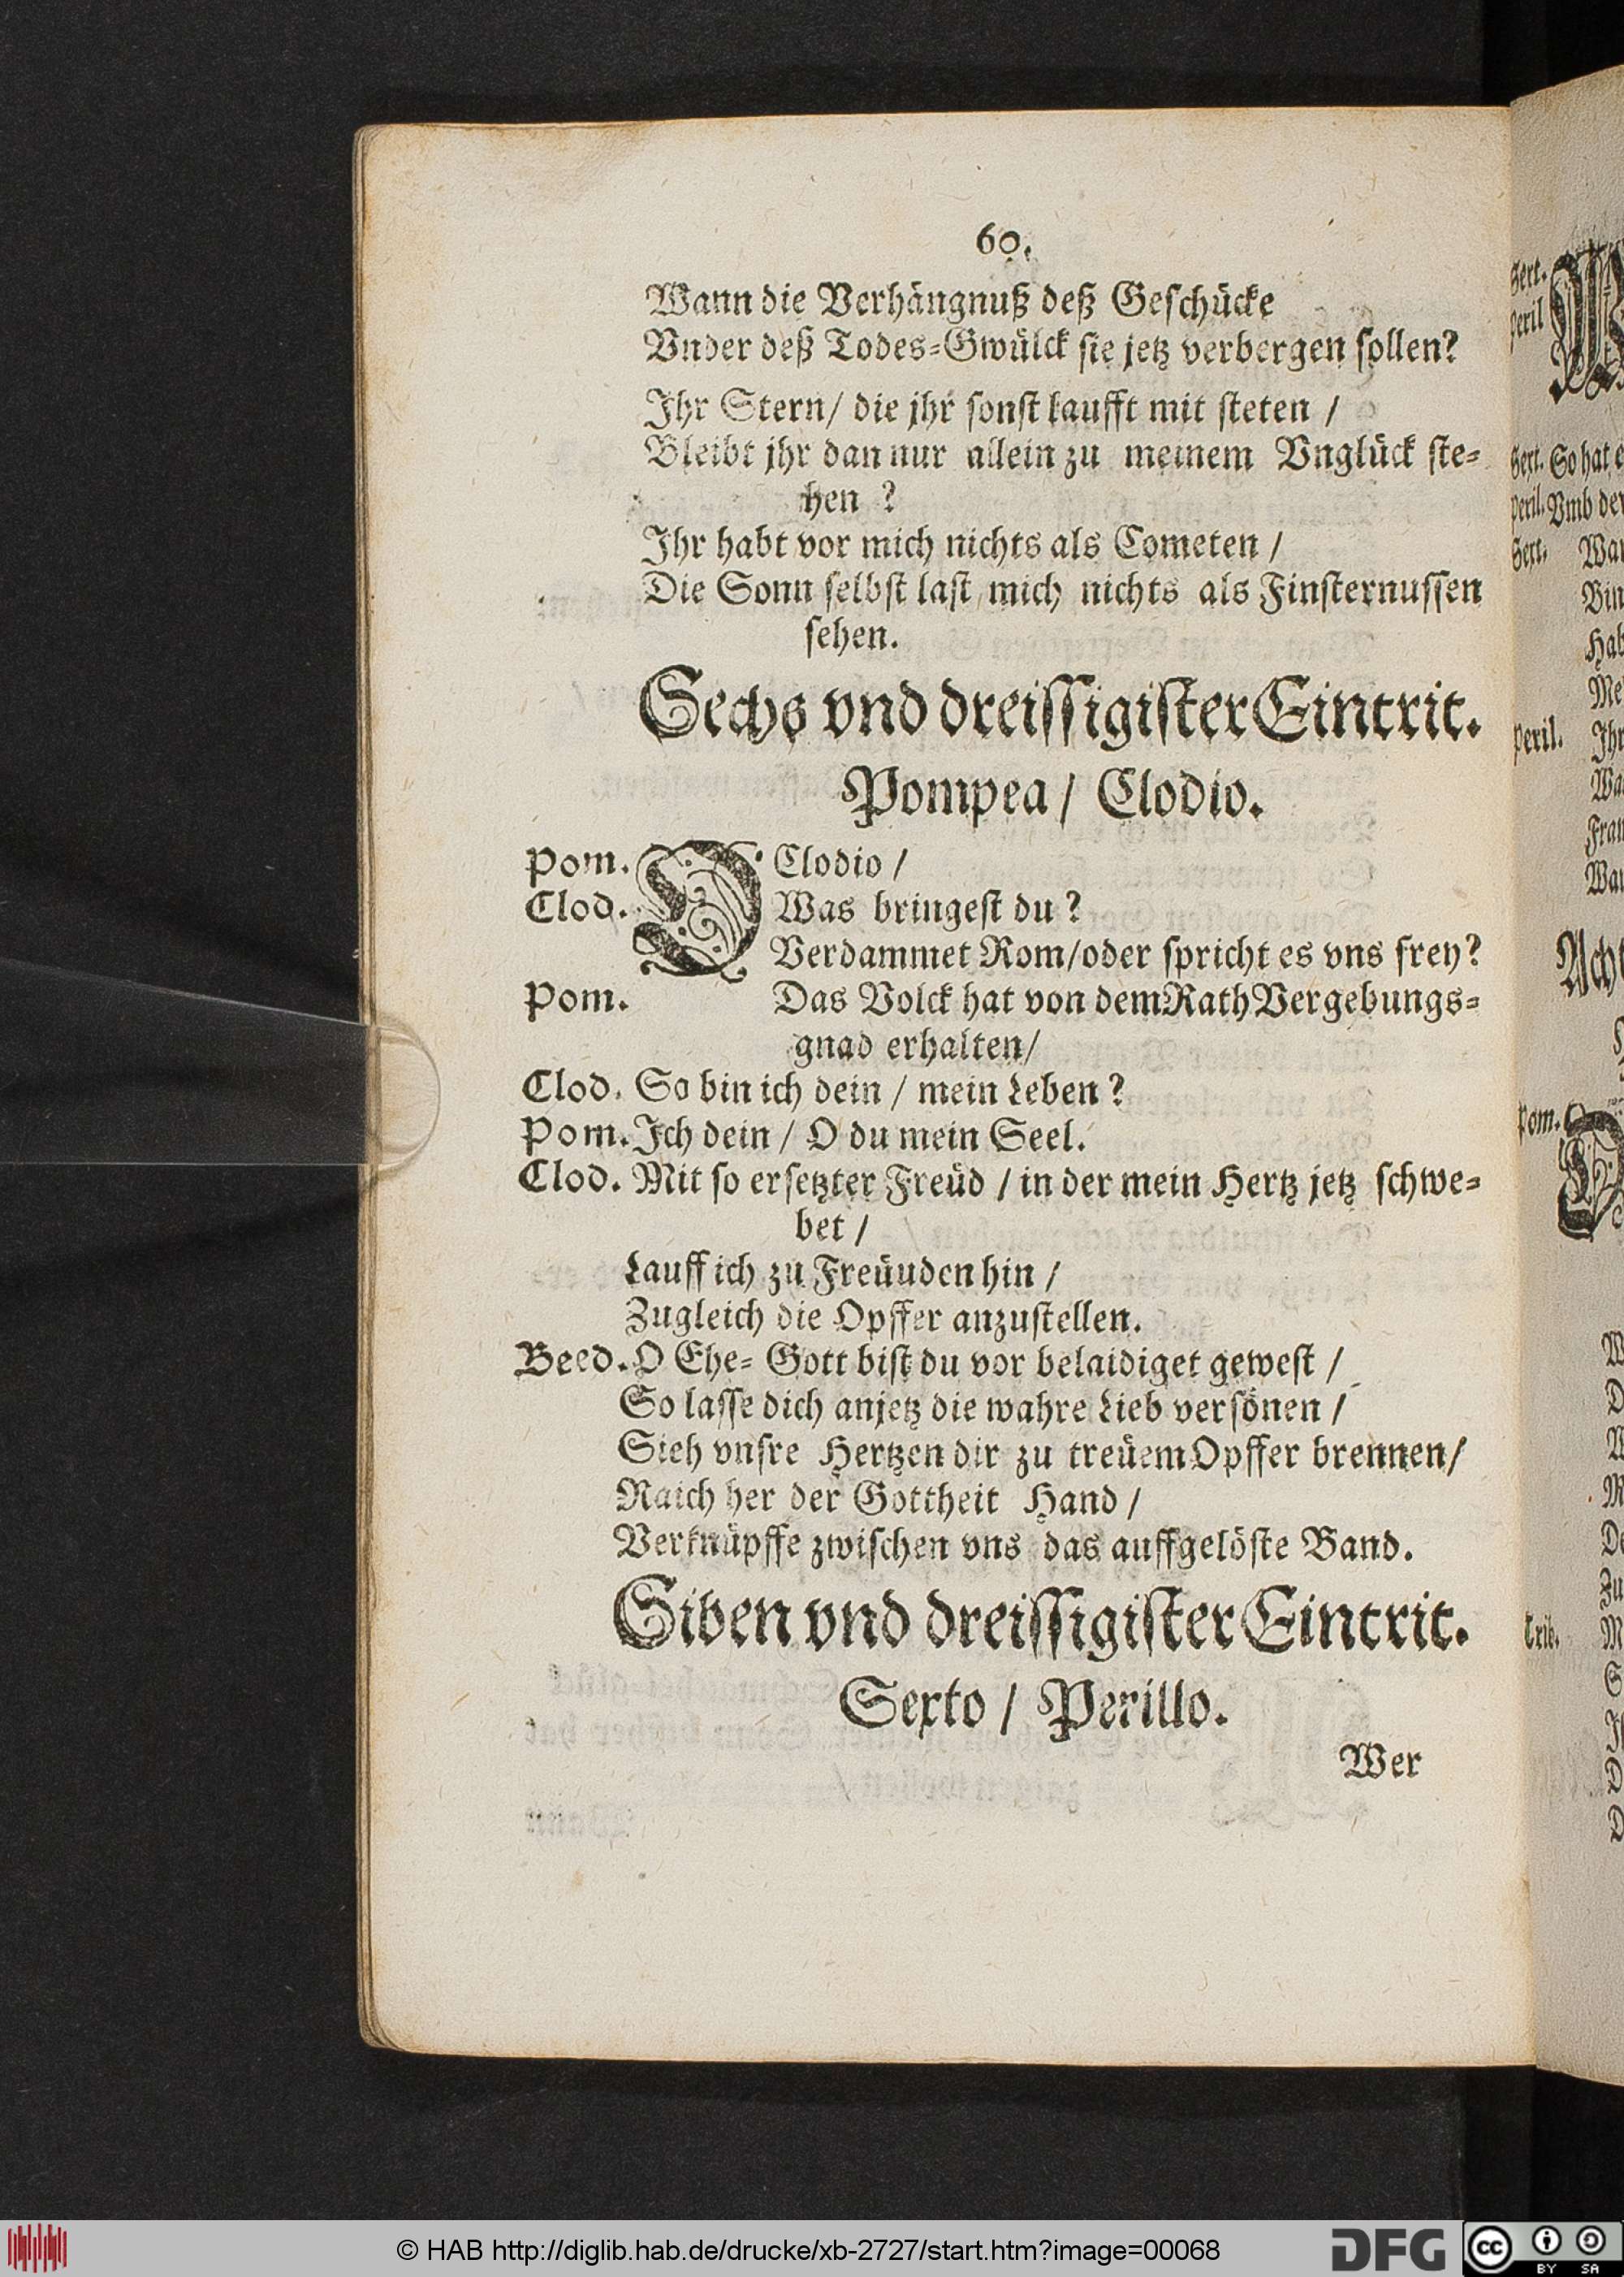 60.
Wann die Verhängnuß deß Geschücke
Vnder deß Todes-Gwülck sie jetz verbergen sollen?
Ihr Stern/ die jhr sonst laufft mit steten /
Bleibt jhr dan nur allein zu meinem Vnglück ste-
hen ?
Ihr habt vor mich nichts als Cometen /
Die Sonn selbst last mich nichts als Finsternussen
sehen.
Sechs vnd dreissigister Eintrit.
Pompea / Clodio.
Pom. O Clodio /
Clod. Was bringest du ?
Verdammet Rom/oder spricht es vns frey?
Pom. Das Volck hat von dem Rath Vergebungs-
gnad erhalten/
Clod. So bin ich dein / mein Leben ?
Pom. Ich dein / O du mein Seel.
Clod. Mit so ersetzter Freüd / in der mein Hertz jetz schwe-
bet /
Lauff ich zu Freüuden hin /
Zugleich die Opffer anzustellen.
Beed. O Ehe- Gott bist du vor belaidiget gewest /
So lasse dich anjetz die wahre Lieb versönen /
Sieh vnsre Hertzen dir zu treüem Opffer brennen/
Raich her der Gottheit Hand /
Verknüpffe zwischen vns das auffgelöste Band.
Siben vnd dreissigister Eintrit.
Sexto / Perillo.
Wer
Sext.
Peril
Sext. So hat
Peril. Vmb
Sext.
Peril. Ihr
Pom.
Trib.
© HAB http://diglib.hab.de/drucke/xb-2727/start.htm?image=00068
DFG
cc
BY SA